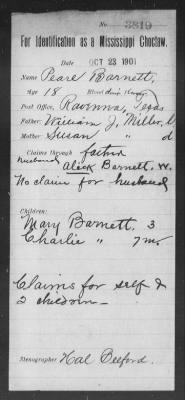 No. 3819
For Identification as a Mississippi Choctaw.
Date OCT 23 1901
Name Pearl Barnett,
Age 18 Blood
Post Office, Ravenna, Texas
Father: William J. Miller,
Mother Susan " d
Claims through father
husband Alick Barnett. W.
No claim for husband
Children:
Mary Barnett. 3
Charlie " 7 mo
Claims for self &
2 children—
Stenographer Hal Belford.